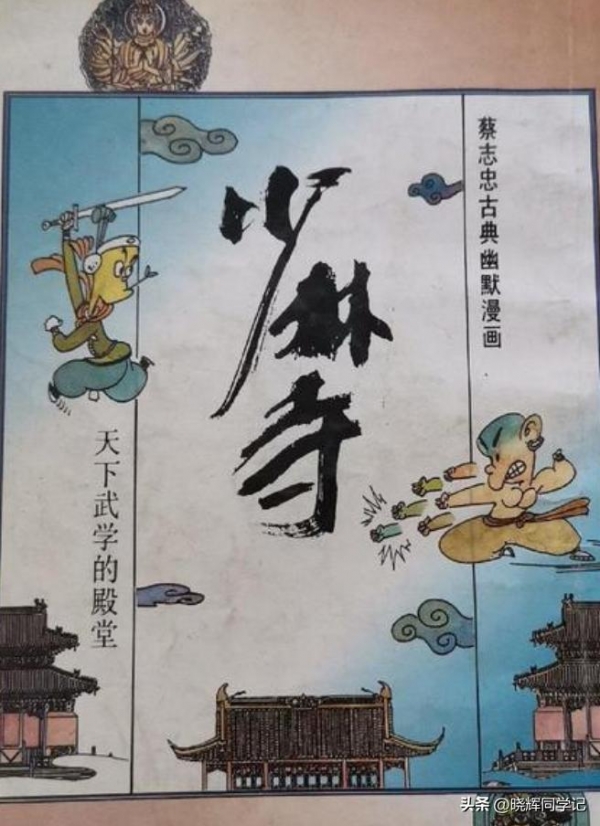 蔡志忠古典幽默漫画
少林寺
天下武学的殿堂
头条 @晓辉同学记